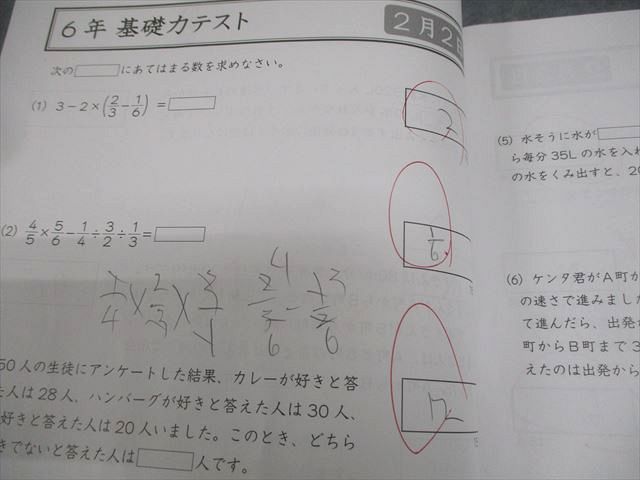 6年 基礎力テスト
2月2日
次の□にあてはまる数を求めなさい。
(1) 3-2×(2/3-1/6) =□
2
(2) 4/5×5/6-1/4÷3/2÷1/3=□
1/6
1/4×2/3×3/1
2/3-1/2
4 3
6 6
50人の生徒にアンケートした結果、カレーが好きと答
た人は28人、ハンバーグが好きと答えた人は30人、
好きと答えた人は20人いました。このとき、どちら
きでないと答えた人は□人です。
12
(5) 水そうに水が
ら毎分35Lの水を入れ
の水をくみ出すと、20
(6) ケンタ君がA町か
の速さで進みました
て進んだら、出発か
町からB町まで3
えたのは出発から